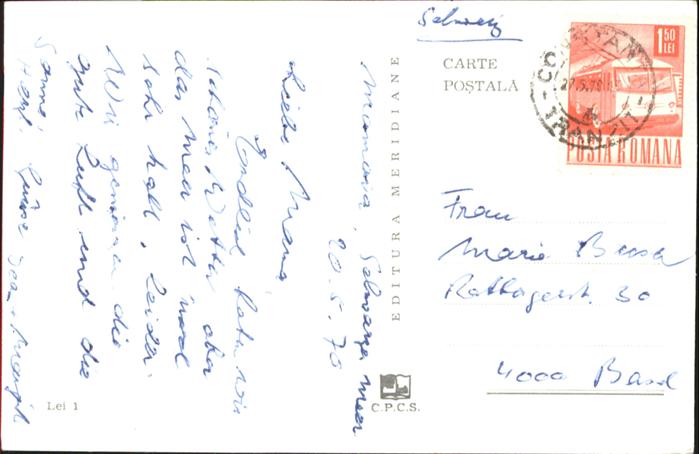 Schweiz
CARTE
POȘTALĂ
1,50
LEI
TRANZIT
POSTA ROMANA
Schwarzes Meer
20.5.70
Liebe Mama,
Endlich haben wir
schönes Wetter aber
das Meer ist noch
sehr kalt, leider.
Wir geniessen die
gute Luft und die
Sonne,
Herzl. Grüsse
EDITURA MERIDIANE
C.P.C.S.
Lei 1
Frau
Marie
30
4000 Basel